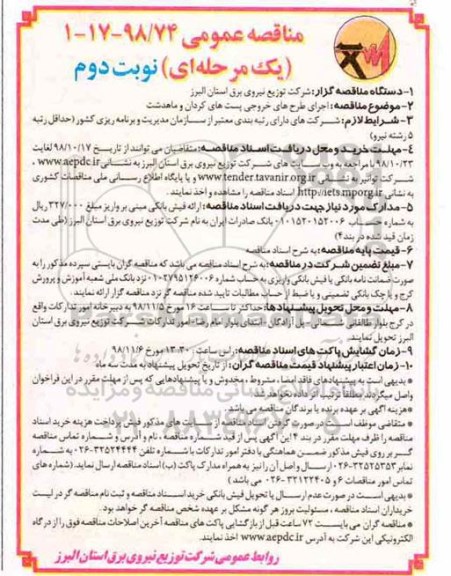 مناقصه عمومی ۹۸/۷۴-۱۷-۱
(یک مرحله‌ای) نوبت دوم
۱-دستگاه مناقصه گزار: شرکت توزیع نیروی برق استان البرز
۲-موضوع مناقصه: اجرای طرح های خروجی پست های کردان و ماهدشت
۳-شرایط لازم: شرکت های دارای رتبه بندی معتبر از سازمان مدیریت و برنامه ریزی کشور (حداقل رتبه
۵ رشته نیرو)
۴-مهلت خرید و محل دریافت اسناد مناقصه: متقاضیان می توانند از تاریخ ۹۸/۱۰/۱۷ لغایت
۹۸/۱۰/۲۳ با مراجعه به وب سایت های شرکت توزیع نیروی برق استان البرز به نشانی www.aepdc.ir ،
شرکت توانیر به نشانی www.tender.tavanir.org.ir و یا پایگاه اطلاع رسانی ملی مناقصات کشوری
به نشانی http://iets.mporg.ir اسناد مناقصه را مشاهده و اخذ نمایند.
۵-مدارک مورد نیاز جهت دریافت اسناد مناقصه: ارائه فیش بانکی مبنی بر واریز مبلغ ۳۲۷/۰۰۰ ریال
به شماره حساب ۰۱۰۱۵۲۰۱۵۲۰۰۶ بانک صادرات ایران به نام شرکت توزیع نیروی برق استان البرز (طی مدت
زمان قید شده در بند ۴)
۶-قیمت پایه مناقصه: به شرح اسناد مناقصه
۷-مبلغ تضمین شرکت در مناقصه: به شرح اسناد مناقصه می باشد که مناقصه گران بایستی سپرده مذکور را به
صورت ضمانت نامه بانکی یا فیش بانکی واریزی به حساب شماره ۰۱۰۲۷۹۵۱۲۶۰۰۶ نزد بانک ملی شعبه آموزش و پرورش
کرج و یا چک بانکی تضمینی و یا ضبط از حساب مطالبات تایید شده مناقصه گر نزد مناقصه گزار ارائه نمایند.
۸-مهلت و محل تحویل پیشنهادها: حداکثر تا ساعت ۱۶ مورخ ۹۸/۱۱/۵ به دبیرخانه امور تدارکات واقع
در کرج بلوار طالقانی شمالی پل آزادگان ابتدای بلوار امام رضا امور تدارکات شرکت توزیع نیروی برق استان
البرز تحویل نمایند.
۹-زمان گشایش پاکت های اسناد مناقصه: راس ساعت ۱۳:۳۰ مورخ ۹۸/۱۱/۶
۱۰-زمان اعتبار پیشنهاد قیمت مناقصه گران: از تاریخ تحویل پیشنهاد به مدت سه ماه
* بدیهی است به پیشنهادهای فاقد امضا، مشروط، مخدوش و یا پیشنهادهایی که پس از مهلت مقرر در این فراخوان
واصل میگردند مطلقا ترتیب اثر داده نخواهد شد.
*هزینه آگهی بر عهده برنده یا برندگان مناقصه می باشد
* متقاضی موظف است در صورت گرفتن اسناد مناقصه از سایت های مذکور فیش پرداخت هزینه خرید اسناد
مناقصه را ظرف مهلت مقرر در بند ۴ این آگهی پس از قید شماره مناقصه، نام و آدرس و شماره تماس مناقصه
گر بر روی فیش مذکور ضمن هماهنگی با دفتر امور تدارکات با شماره تلفن ۳۲۵۲۴۴۴۴-۰۲۶ به شماره
نمابر ۳۲۵۲۵۳۵۳-۰۲۶ ارسال و اصل آن را نیز به همراه مدارک پاکت (ب) اسناد مناقصه ارسال نماید. (شماره های
تماس امور مناقصات ۶ و ۳۲۱۲۲۴۰۵-۰۲۶ می باشد)
* بدیهی است در صورت عدم ارسال یا تحویل فیش بانکی خرید اسناد مناقصه و ثبت نام مناقصه گر در لیست
خریداران اسناد مناقصه ، مسئولیت بروز هر گونه مشکل بر عهده شخص مناقصه گر خواهد بود.
* مناقصه گران می بایست ۷۲ ساعت قبل از بازگشایی پاکت های مناقصه آخرین اصلاحات مناقصه فوق را از درگاه
الکترونیکی این شرکت به آدرس www.aepdc.ir اخذ نمایند.
روابط عمومی شرکت توزیع نیروی برق استان البرز